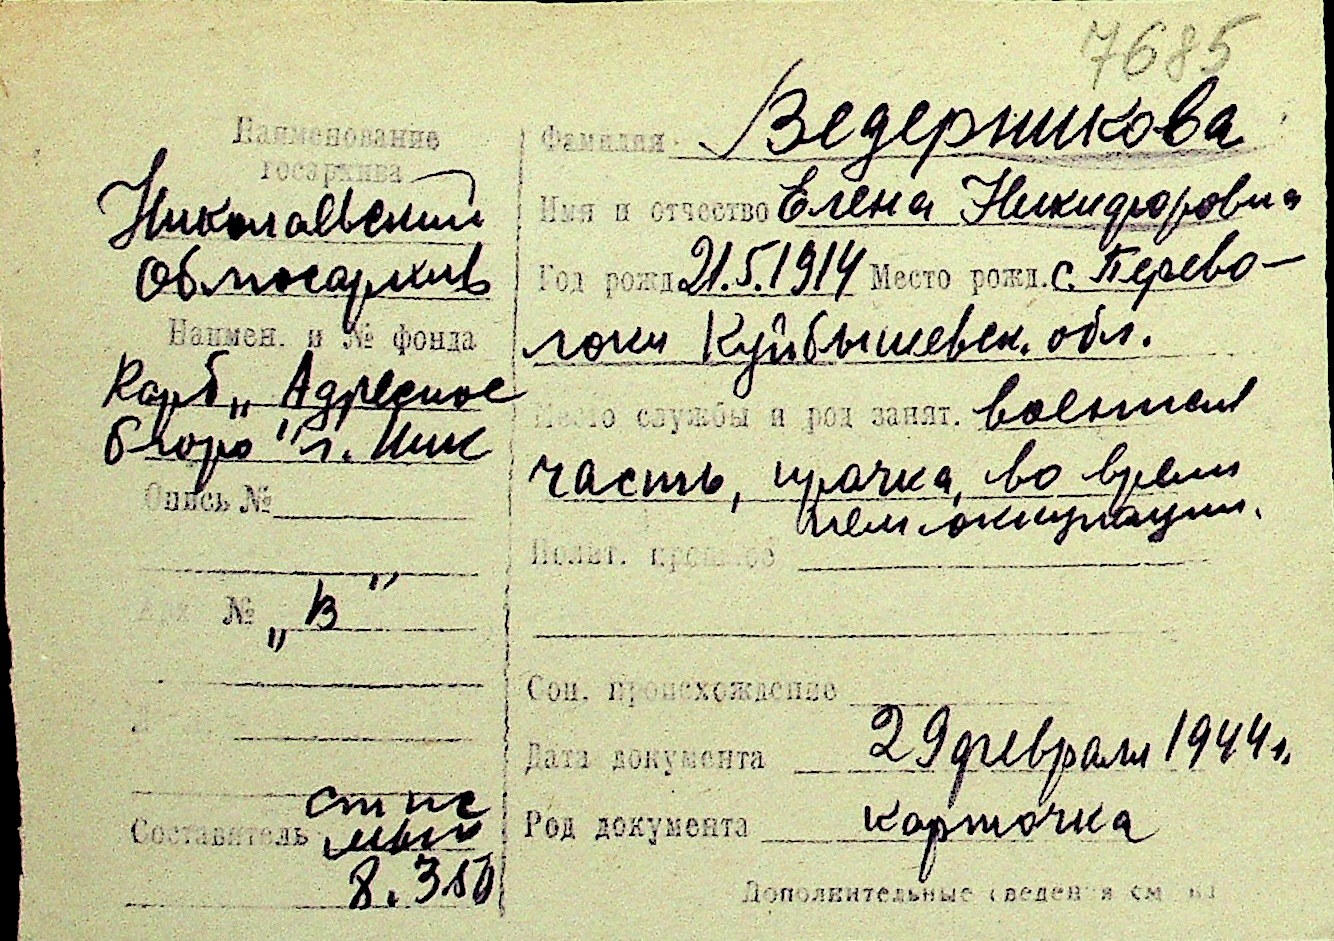 7685
Наименование
госархива
Николаевский
Облгосархив
Наимен. и № фонда
Карт „Адресное
бюро" г. Ник
Опись №
Арх №
„В"
Л
Составитель
8.3.50
Фамилия Ведерникова
Имя и отчество Елена Никифоровна
Год рожд 21.5.1914 Место рожд. с. Перево-
локи Куйбышевск. обл.
Место службы и род занят. военная
часть, прачка, во время
нем оккупации.
Полит. прошлое
Соц. происхождение
Дата документа 29 февраля 1944 г.
Род документа карточка
Дополнительные сведения см на